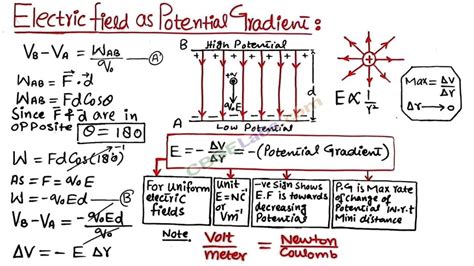 Electric field as Potential Gradient:
V_B - V_A = W_AB / q₀ — (A)
W_AB = F⃗ · d⃗
W_AB = Fd Cosθ
Since F⃗ & d⃗ are in
opposite θ = 180
W = Fd Cos(180°) -1
As F = q₀E
W = -q₀Ed — (B)
V_B - V_A = -q₀Ed / q₀
ΔV = - E Δr
B High Potential
+ + + + + + + +
+q₀
q₀E
d
A Low Potential
E ∝ 1/r²
Max = ΔV/Δr
Δr → 0
E = - ΔV/Δr = -(Potential Gradient)
For Uniform
electric
fields
Unit
E = NC⁻¹
or
Vm⁻¹
-ve Sign shows
E.F is towards
decreasing
Potential
P.G is Max rate
of change of
Potential w.r.t
Mini distance
Note. Volt/meter = Newton/Coulomb